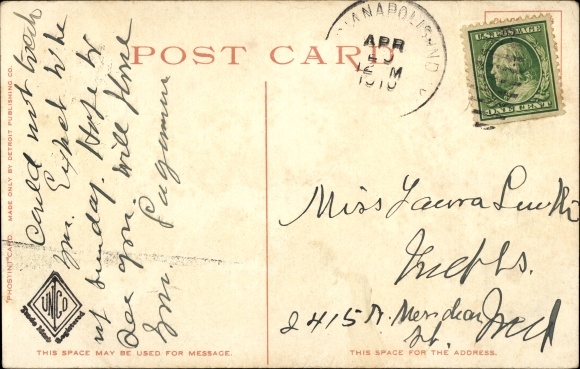 POST CARD
INDIANAPOLIS, IND
APR
12 M
1910
U.S. POSTAGE
ONE CENT
Could not reach
you. Expect to be
at Sunday. Hope to
see you. Will phone
you.
Miss Laura
Indpls.
2415 N. Meridian
St.
Ind
PHOSTINT CARD MADE ONLY BY DETROIT PUBLISHING CO.
UNICO
THIS SPACE MAY BE USED FOR MESSAGE.
THIS SPACE FOR THE ADDRESS.